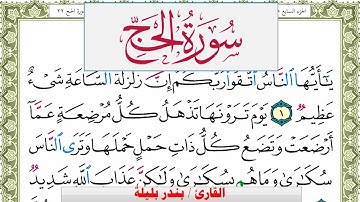 الجزء السابع عشر
سورة الحج ٢٢
سُورَةُ الحَجّ
يَٰٓأَيُّهَا ٱلنَّاسُ ٱتَّقُوا۟ رَبَّكُمْ إِنَّ زَلْزَلَةَ ٱلسَّاعَةِ شَىْءٌ
عَظِيمٌ ١ يَوْمَ تَرَوْنَهَا تَذْهَلُ كُلُّ مُرْضِعَةٍ عَمَّآ
أَرْضَعَتْ وَتَضَعُ كُلُّ ذَاتِ حَمْلٍ حَمْلَهَا وَتَرَى ٱلنَّاسَ
سُكَٰرَىٰ وَمَا هُم بِسُكَٰرَىٰ وَلَٰكِنَّ عَذَابَ ٱللَّهِ شَدِيدٌ
القارئ / بندر بليلة